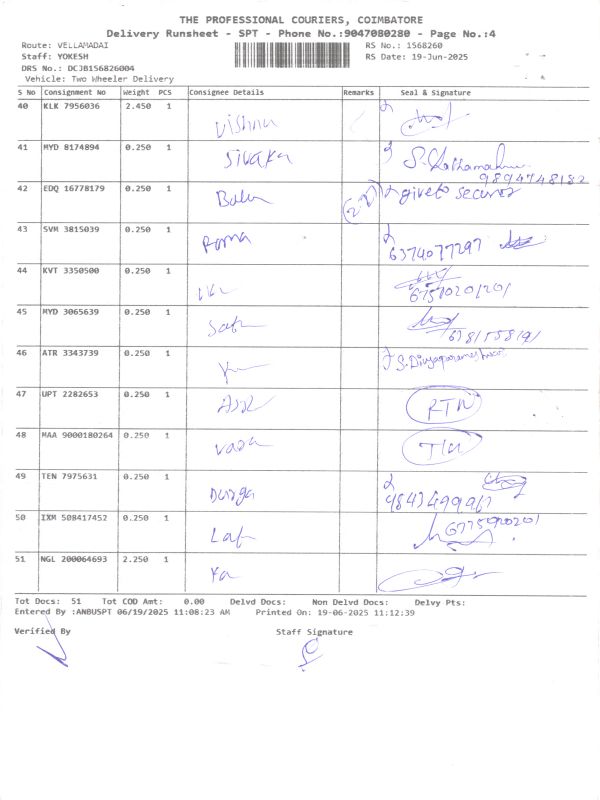 THE PROFESSIONAL COURIERS, COIMBATORE
Delivery Runsheet - SPT - Phone No.:9047080280 - Page No.:4
Route: VELLAMADAI RS No.: 1568260
Staff: YOKESH RS Date: 19-Jun-2025
DRS No.: DCJB156826004
Vehicle: Two Wheeler Delivery
S No Consignment No Weight PCS Consignee Details Remarks Seal & Signature
40 KLK 7956036 2.450 1 Vishnu
41 MYD 8174894 0.250 1 Sivaka
9894748182
42 EDQ 16778179 0.250 1 Balu give to
43 SVM 3815039 0.250 1 Roma 6374077297
44 KVT 3350500 0.250 1
45 MYD 3065639 0.250 1
46 ATR 3343739 0.250 1 S. Divyaparameshwari
47 UPT 2282653 0.250 1 RTN
48 MAA 9000180264 0.250 1 Vasa
49 TEN 7975631 0.250 1 Durga
50 IXM 508417452 0.250 1
51 NGL 200064693 2.250 1 Ya
Tot Docs: 51 Tot COD Amt: 0.00 Delvd Docs: Non Delvd Docs: Delvy Pts:
Entered By :ANBUSPT 06/19/2025 11:08:23 AM Printed On: 19-06-2025 11:12:39
Verified By Staff Signature